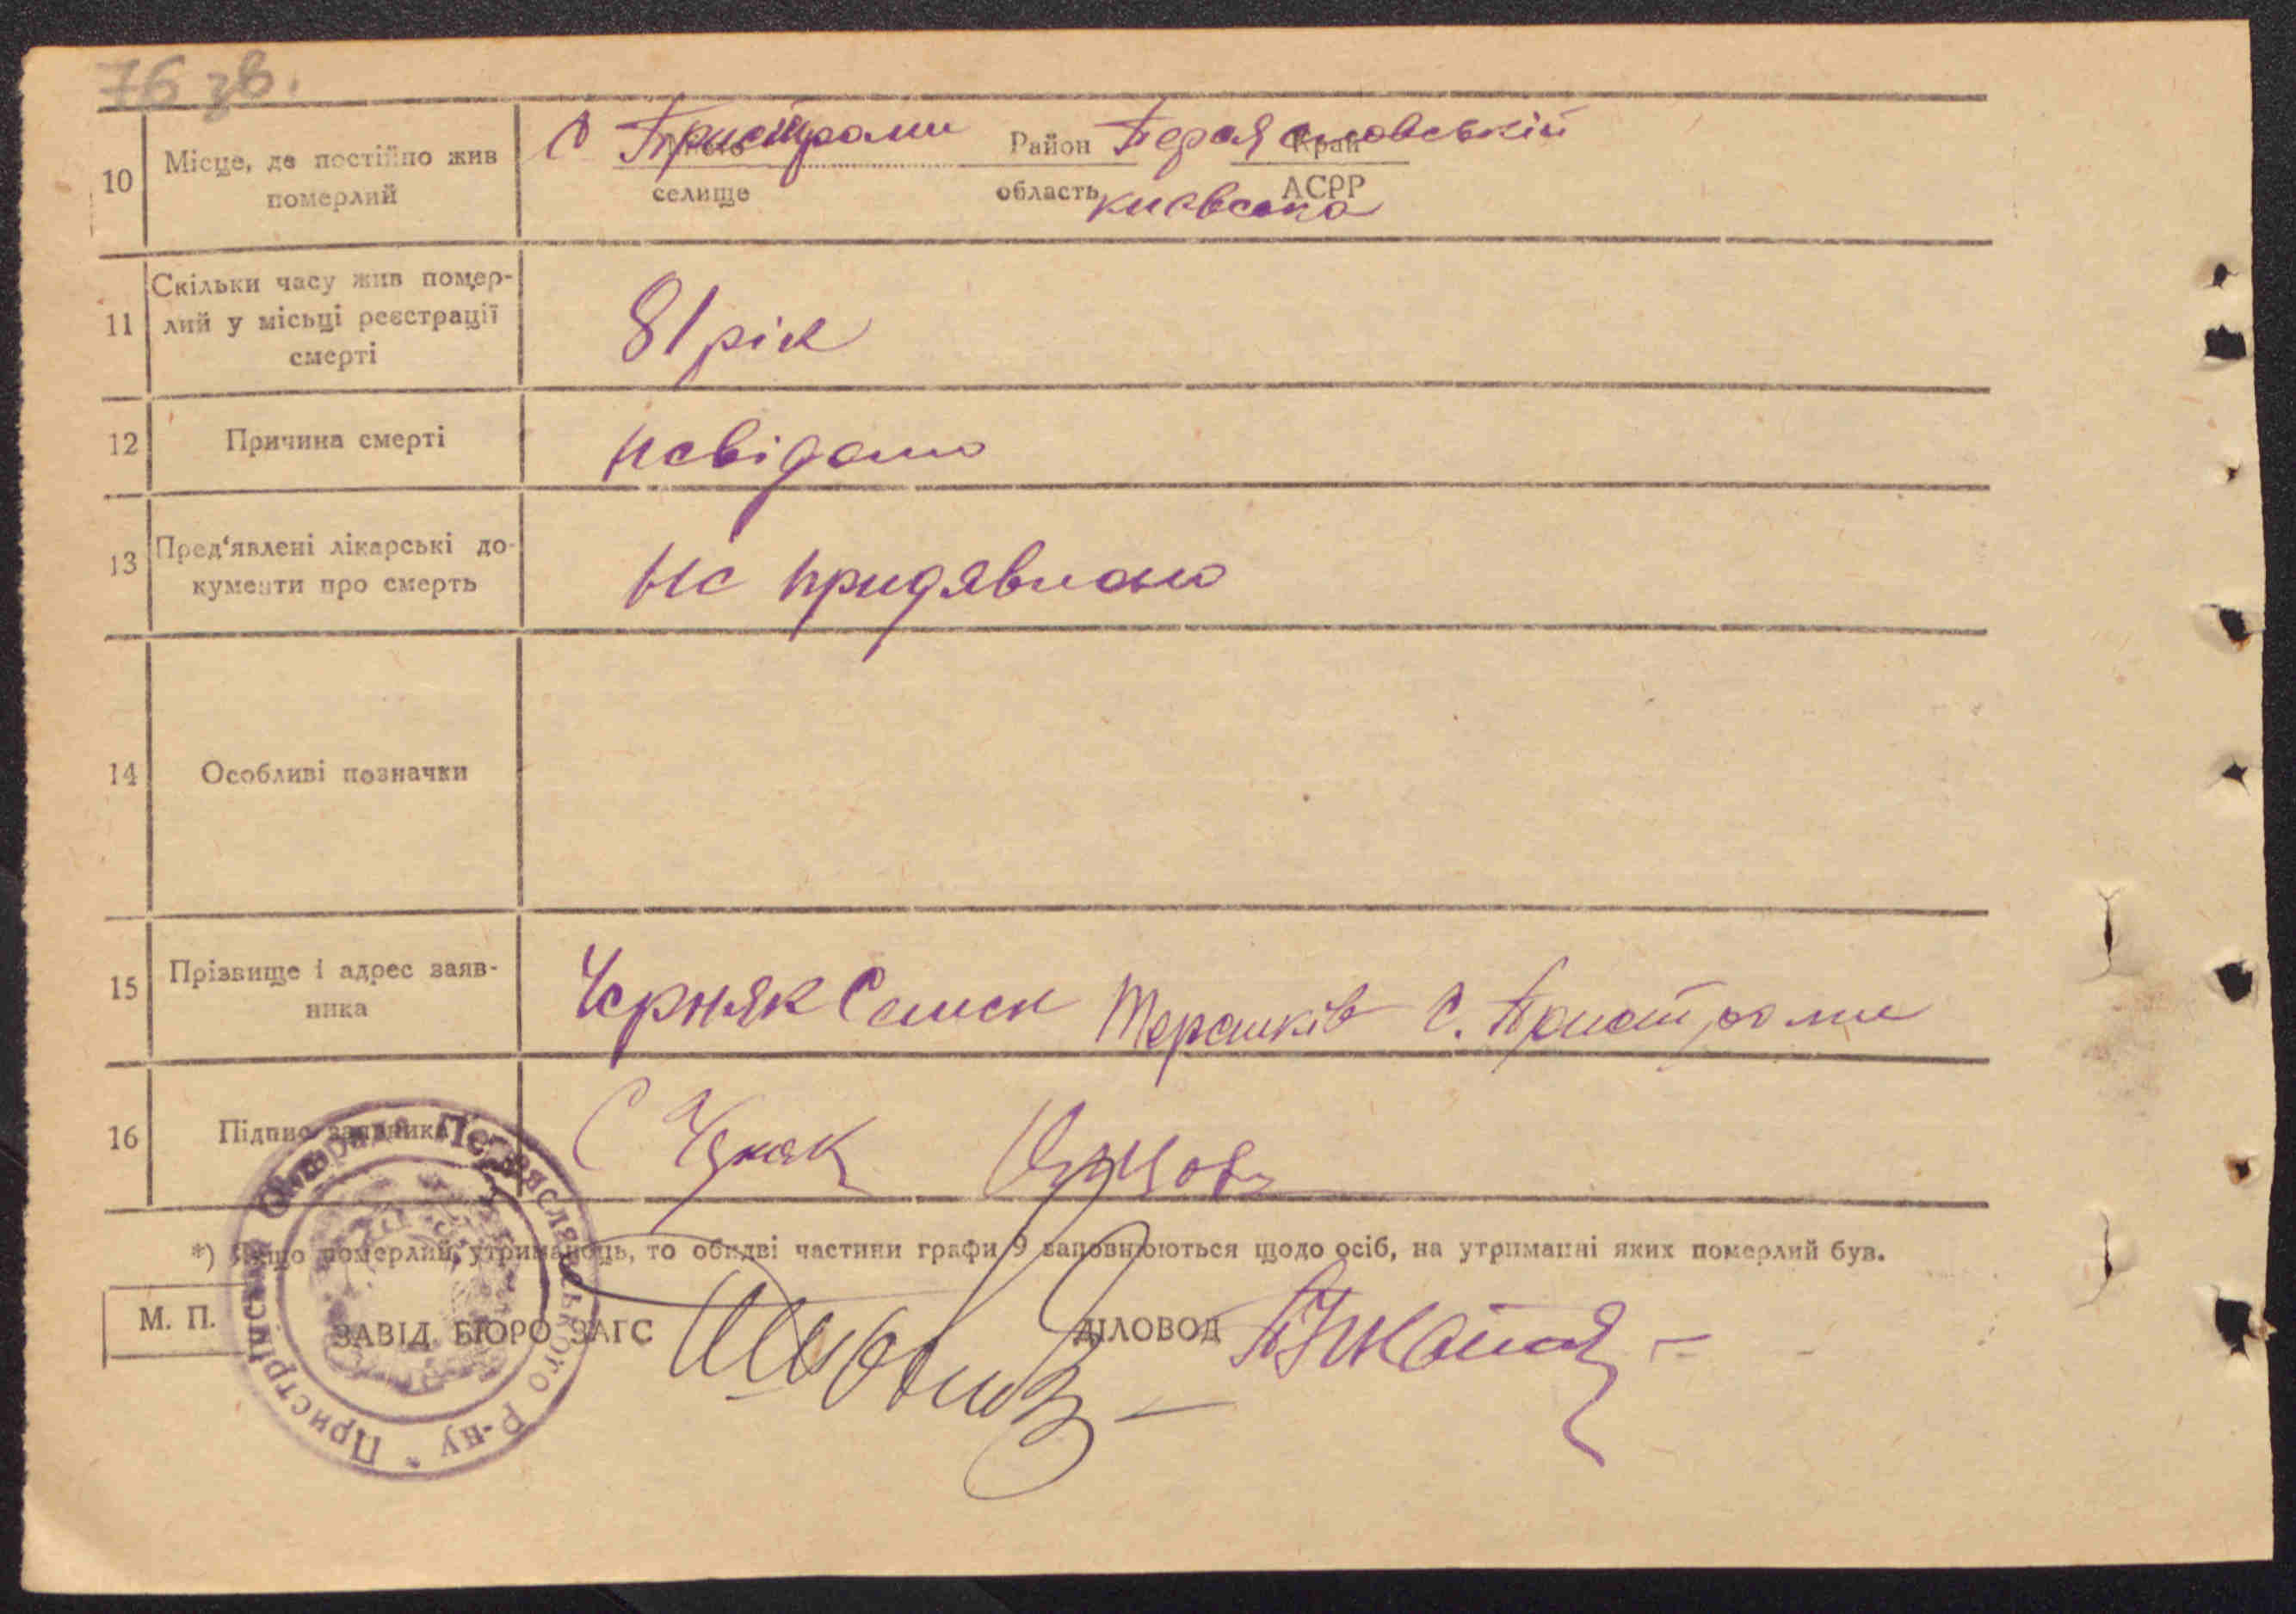 76 зв.
10
Місце, де постійно жив
померлий
с Пристроми Район Переяславській Край
селище область АСРР
київська
11
Скільки часу жив помер-
лий у місьці реєстрації
смерті
81 рік
12
Причина смерті
невідомо
13
Пред'явлені лікарські до-
кументи про смерть
не придявлено
14
Особливі позначки
15
Прізвище і адрес заяв-
ника
Черняк Семен с. Пристроми
16
Підпис заявника
С
*) Якщо померлий, утриманець, то обидві частини графи 9 заповнюються щодо осіб, на утриманні яких померлий був.
М. П.
ЗАВІД. БЮРО ЗАГС
ДІЛОВОД
Переяславського Р-ну * Пристрімська